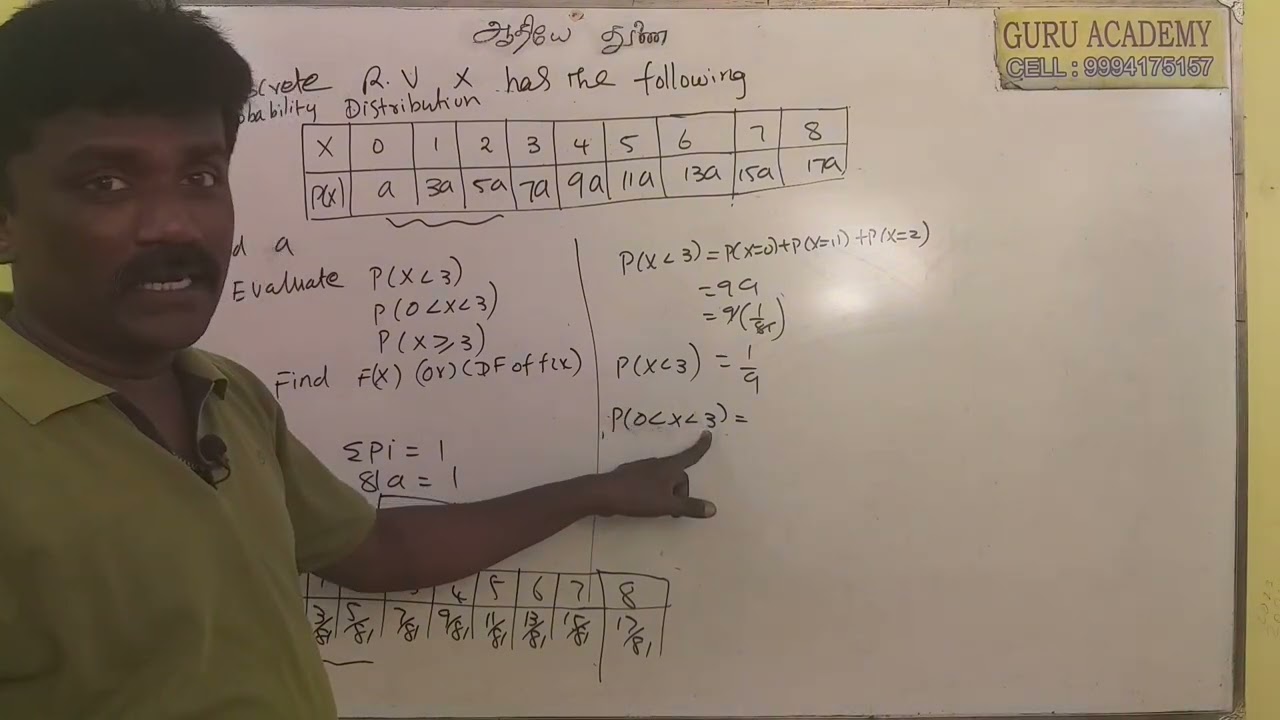 ஆதியே துணை
GURU ACADEMY
CELL : 9994175157
screte R.V X has the following
obability Distribution
X 0 1 2 3 4 5 6 7 8
P(X) a 3a 5a 7a 9a 11a 13a 15a 17a
d a
Evaluate P(X<3)
P(0<X<3)
P(X≥3)
Find F(X) (or) CDF of f(x)
ΣPi = 1
81a = 1
4 5 6 7 8
3/81 5/81 7/81 9/81 11/81 13/81 15/81 17/81
P(X<3) = P(X=0)+P(X=1)+P(X=2)
= 9a
= 9(1/81)
P(X<3) = 1/9
P(0<X<3) =